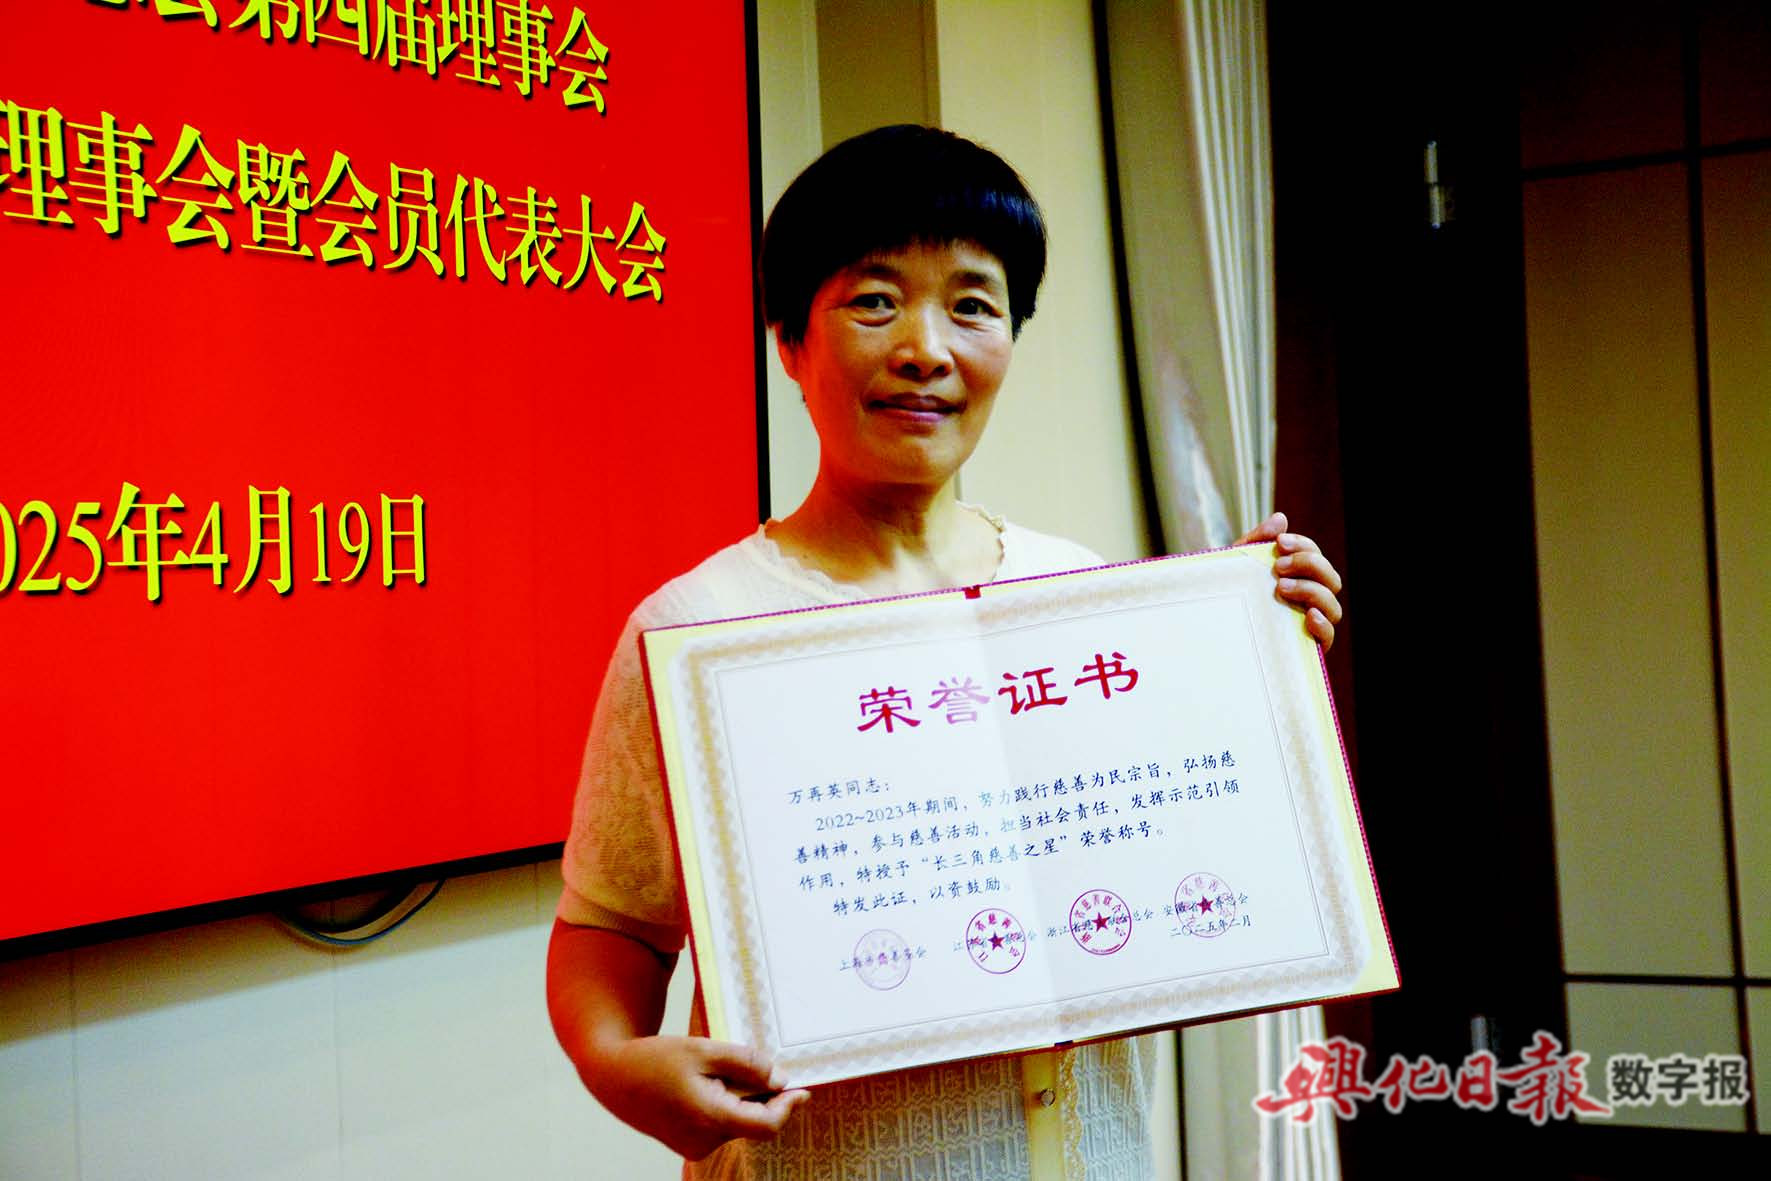 会第四届理事会
理事会暨会员代表大会
2025年4月19日
荣誉证书
万再英同志：
2022~2023年期间，努力践行慈善为民宗旨，弘扬慈
善精神，参与慈善活动，担当社会责任，发挥示范引领
作用，特授予“长三角慈善之星”荣誉称号。
特发此证，以资鼓励。
上海市慈善基金会 江苏省慈善总会 浙江省慈善联合总会 安徽省慈善总会
二〇二五年二月
興化日報 数字报